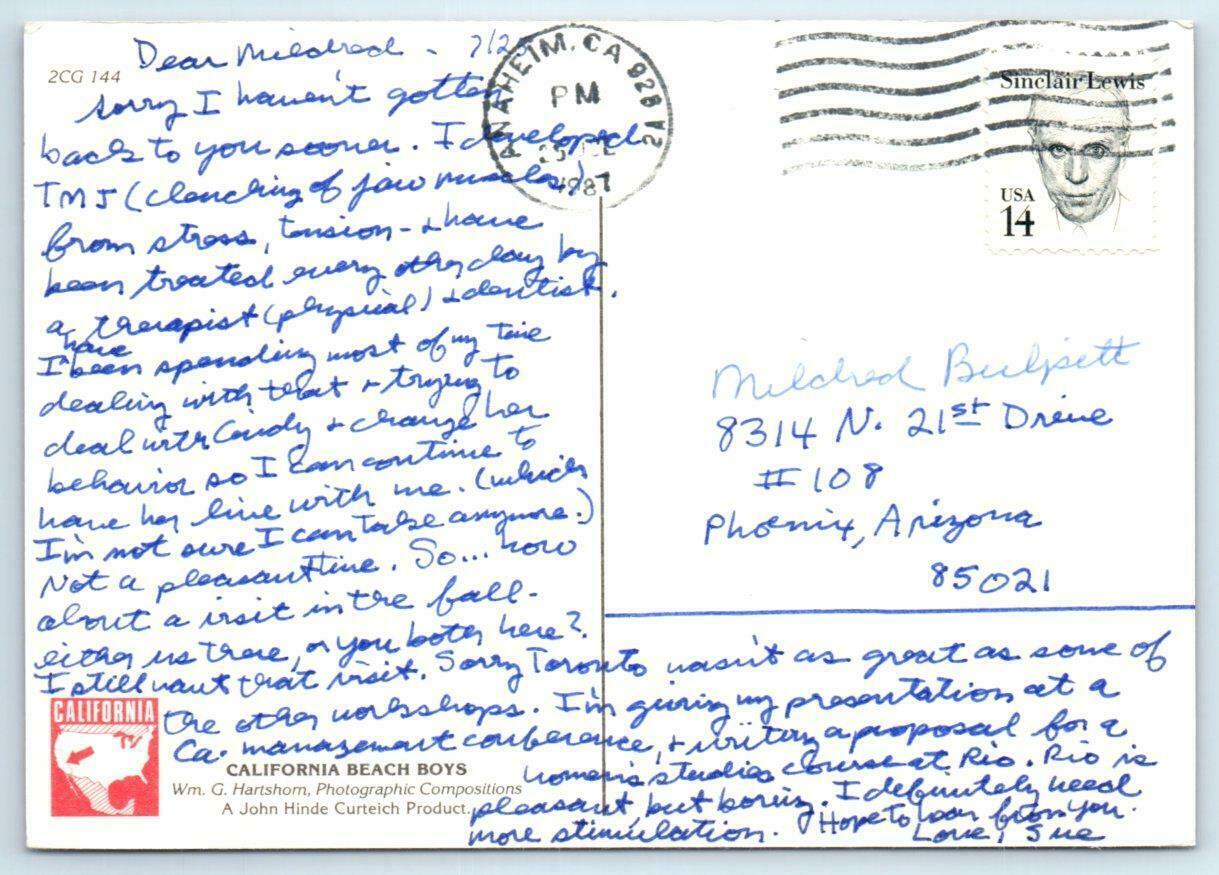 2CG 144
Dear Mildred - 7/2
Sorry I haven't gotten
back to you sooner. I developed
TMJ (clenching of jaw muscles)
from stress, tension - & have
been treated every other day by
a therapist (physical) & dentist.
I have been spending most of my time
dealing with that & trying to
deal with Cindy & change her
behavior so I can continue to
have her live with me. (which
I'm not sure I can take anymore.)
Not a pleasant time. So... how
about a visit in the fall -
either us there, or you both here?
I still want that visit. Sorry Toronto wasn't as great as some of
the other workshops. I'm giving my presentation at a
Ca. management conference, & writing a proposal for a
women's studies course at Rio. Rio is
pleasant, but boring. I definitely need
more stimulation. Hope to hear from you.
Love, Sue
ANAHEIM, CA 928
PM
1987
2A
Sinclair Lewis
USA
14
Mildred
8314 N. 21st Drive
#108
Phoenix, Arizona
85021
CALIFORNIA
CALIFORNIA BEACH BOYS
Wm. G. Hartshorn, Photographic Compositions
A John Hinde Curteich Product.